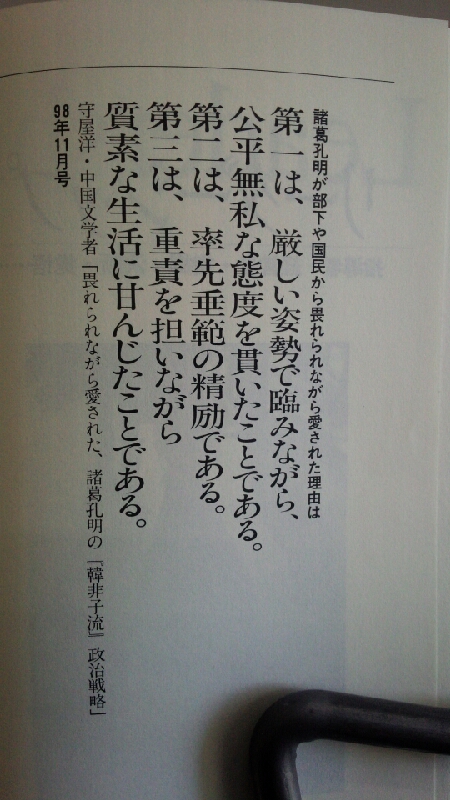 諸葛孔明が部下や国民から畏れられながら愛された理由は
第一は、厳しい姿勢で臨みながら、
公平無私な態度を貫いたことである。
第二は、率先垂範の精励である。
第三は、重責を担いながら
質素な生活に甘んじたことである。
守屋洋・中国文学者「畏れられながら愛された、諸葛孔明の『韓非子流』政治戦略」
98年11月号